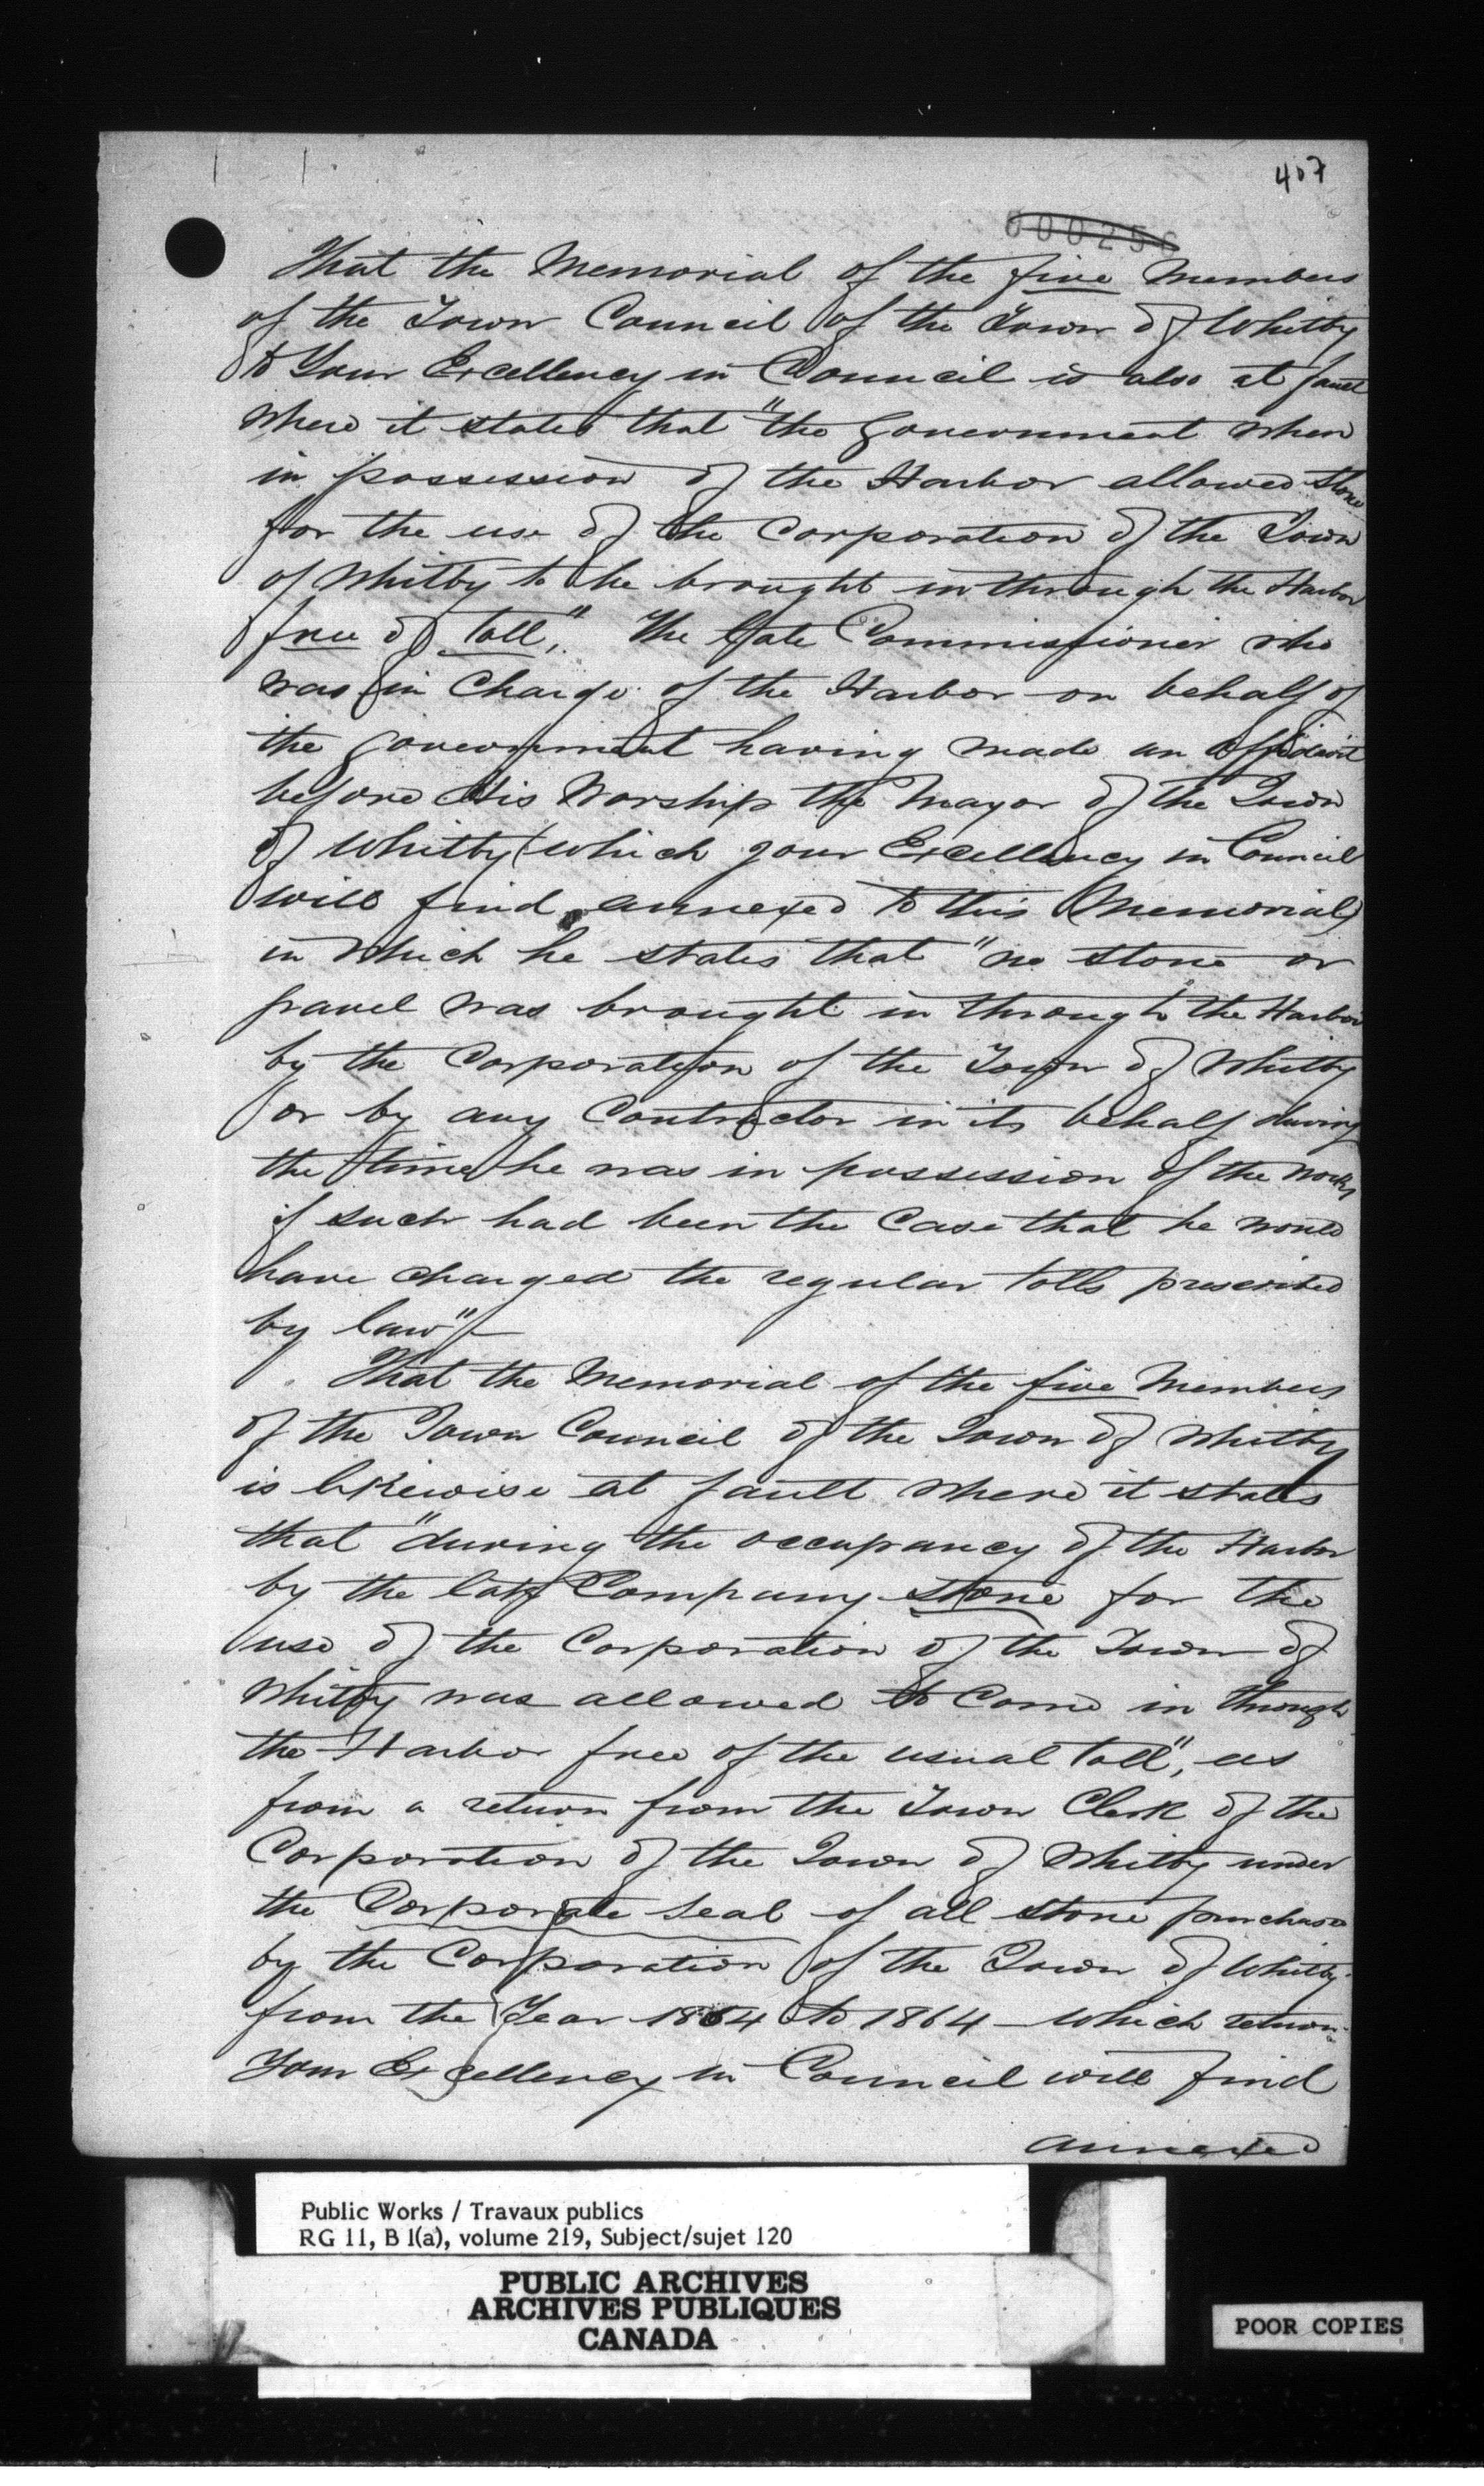 407
000256
That the Memorial of the five Members
of the Town Council of the Town of Whitby
to Your Excellency in Council is also at fault
where it states that "the Government when
in possession of the Harbor allowed stone
for the use of the Corporation of the Town
of Whitby to be brought in through the Harbor
free of toll," The late Commissioner who
was in Charge of the Harbor on behalf of
the Government having made an affidavit
before His Worship the Mayor of the Town
of Whitby (which your Excellency in Council
will find annexed to this Memorial)
in which he states that "no stone or
gravel was brought in through the Harbor
by the Corporation of the Town of Whitby
or by any Contractor in its behalf during
the time he was in possession of the works
if such had been the Case that he would
have charged the regular tolls prescribed
by law"
That the Memorial of the five Members
of the Town Council of the Town of Whitby
is likewise at fault where it states
that "during the occupancy of the Harbor
by the late Company stone for the
use of the Corporation of the Town of
Whitby was allowed to Come in through
the Harbor free of the usual toll", as
from a return from the Town Clerk of the
Corporation of the Town of Whitby under
the Corporate Seal of all stone purchased
by the Corporation of the Town of Whitby
from the Year to 1864 - which return
Your Excellency in Council will find
annexed
Public Works / Travaux publics
RG 11, B 1(a), volume 219, Subject/sujet 120
PUBLIC ARCHIVES
ARCHIVES PUBLIQUES
CANADA
POOR COPIES